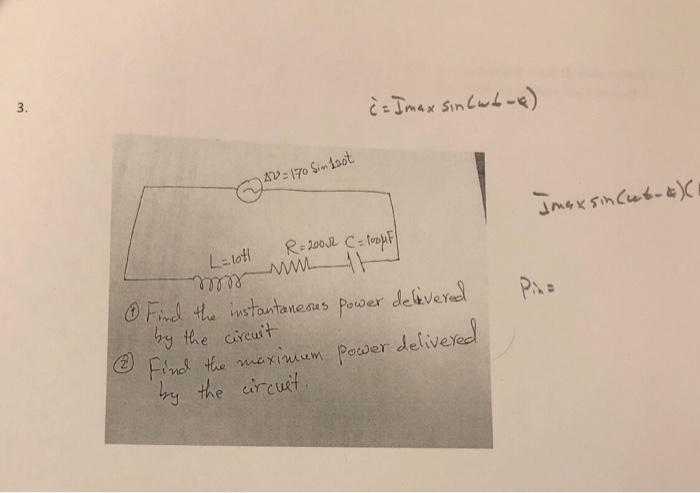 3.
i = Imax sin(ωt-φ)
ΔV = 170 Sin 120t
Imax sin(ωt-φ)(
L = 10H
R = 200Ω C = 100μF
① Find the instantaneous power delivered
by the circuit
② Find the maximum power delivered
by the circuit.